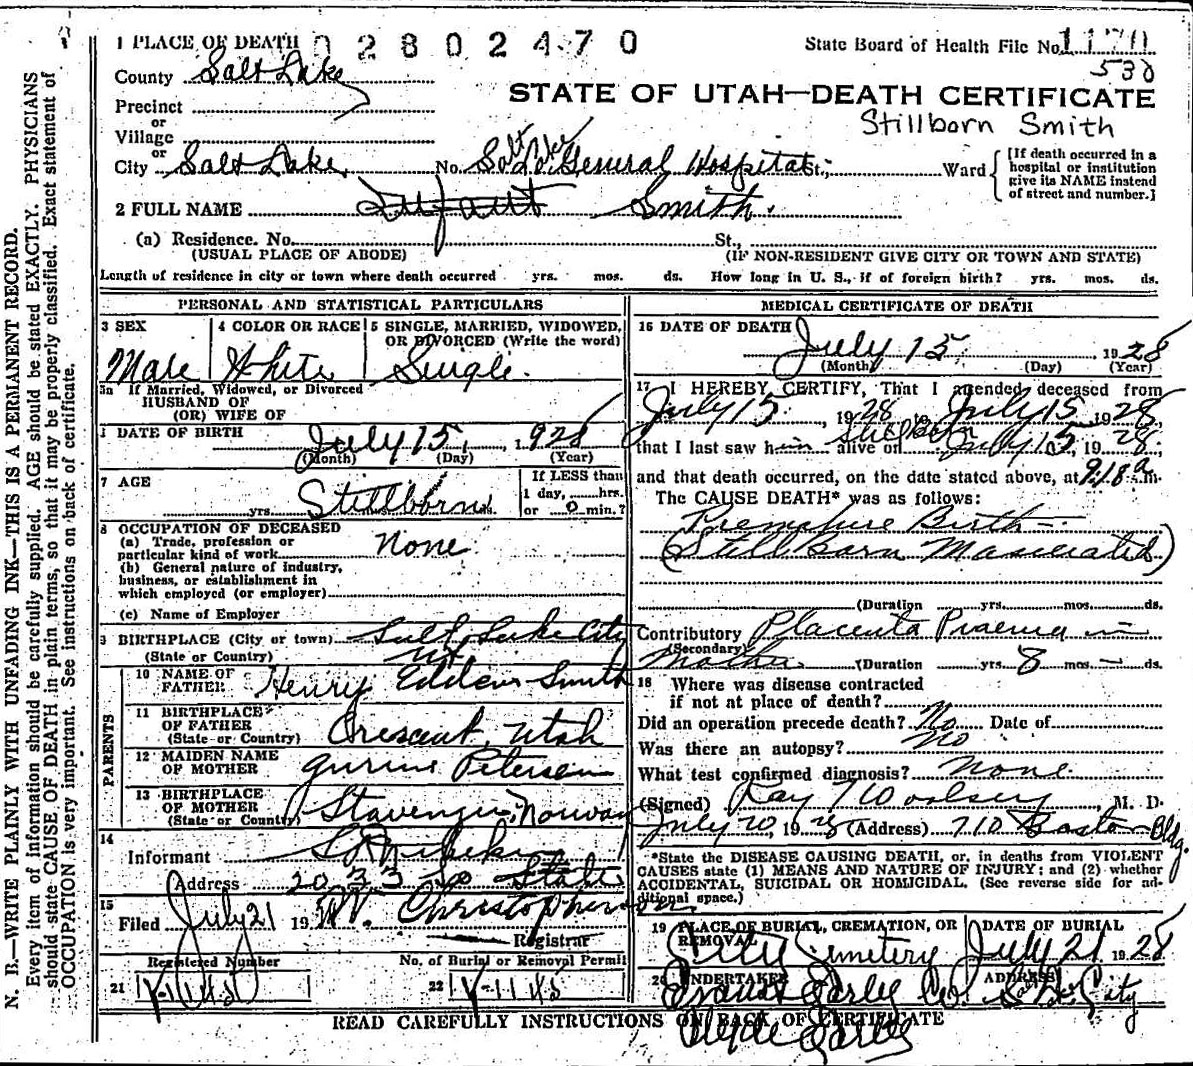 1 PLACE OF DEATH 02802470 State Board of Health File No. 1170
County Salt Lake 530
Precinct
STATE OF UTAH—DEATH CERTIFICATE
or
Village
Stillborn Smith
or
City Salt Lake No. Salt Lake General Hospital St.; Ward
[If death occurred in a hospital or institution give its NAME instead of street and number.]
2 FULL NAME Infant Smith.
(a) Residence. No. St.,
(USUAL PLACE OF ABODE) (IF NON-RESIDENT GIVE CITY OR TOWN AND STATE)
Length of residence in city or town where death occurred yrs. mos. ds. How long in U. S., if of foreign birth? yrs. mos. ds.
PERSONAL AND STATISTICAL PARTICULARS
3 SEX Male
4 COLOR OR RACE White
5 SINGLE, MARRIED, WIDOWED, OR DIVORCED (Write the word) Single.
5a If Married, Widowed, or Divorced
HUSBAND OF
(OR) WIFE OF
DATE OF BIRTH July 15, 1928
(Month) (Day) (Year)
7 AGE yrs. Stillborn
If LESS than
1 day, hrs.
or 0 min.?
8 OCCUPATION OF DECEASED
(a) Trade, profession or
particular kind of work None
(b) General nature of industry,
business, or establishment in
which employed (or employer)
(c) Name of Employer
9 BIRTHPLACE (City or town) Salt Lake City
(State or Country) Ut
PARENTS
10 NAME OF FATHER Henry Smith
11 BIRTHPLACE OF FATHER
(State or Country) Crescent, Utah
12 MAIDEN NAME OF MOTHER Petersen
13 BIRTHPLACE OF MOTHER
(State or Country) Stavenger, Norway
14
Informant
Address 2033 So State
15
Filed July 21 19 Christopherson
Registrar
Registered Number No. of Burial or Removal Permit
21 22 Y-1145
MEDICAL CERTIFICATE OF DEATH
16 DATE OF DEATH
July 15, 1928
(Month) (Day) (Year)
17 I HEREBY CERTIFY, That I attended deceased from
July 15, 1928 to July 15 1928
Stillborn
that I last saw him alive on July 15, 1928
and that death occurred, on the date stated above, at 9:18 a.m.
The CAUSE DEATH* was as follows:
Premature Birth—
(Stillborn Macerated)
(Duration yrs. mos. ds.
Contributory Placenta Praevia in
(Secondary)
Mother (Duration yrs. 8 mos. — ds.
18 Where was disease contracted
if not at place of death?
Did an operation precede death? No Date of
Was there an autopsy? No
What test confirmed diagnosis? None.
(Signed) Ray T Woolsey, M. D.
July 20, 1928 (Address) 710 Boston Bldg.
*State the DISEASE CAUSING DEATH, or, in deaths from VIOLENT
CAUSES state (1) MEANS AND NATURE OF INJURY; and (2) whether
ACCIDENTAL, SUICIDAL OR HOMICIDAL. (See reverse side for ad-
ditional space.)
19 PLACE OF BURIAL, CREMATION, OR REMOVAL City Cemetery
DATE OF BURIAL July 21 1928
20 UNDERTAKER Co.
ADDRESS S L City
READ CAREFULLY INSTRUCTIONS ON BACK OF CERTIFICATE
Clyde
N. B.—WRITE PLAINLY WITH UNFADING INK—THIS IS A PERMANENT RECORD.
Every item of information should be carefully supplied. AGE should be stated EXACTLY. PHYSICIANS
should state CAUSE OF DEATH in plain terms, so that it may be properly classified. Exact statement of
OCCUPATION is very important. See instructions on back of certificate.